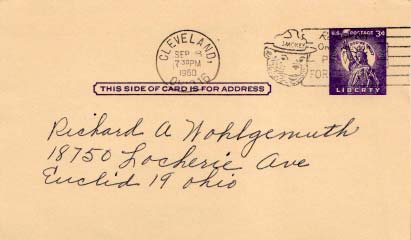 CLEVELAND,
SEP 18
7 30 PM
1960
OHIO
SMOKEY
U.S. POSTAGE 3¢
LIBERTY
THIS SIDE OF CARD IS FOR ADDRESS
Richard A Wohlgemuth
18750 Locherie Ave
Euclid 19 Ohio